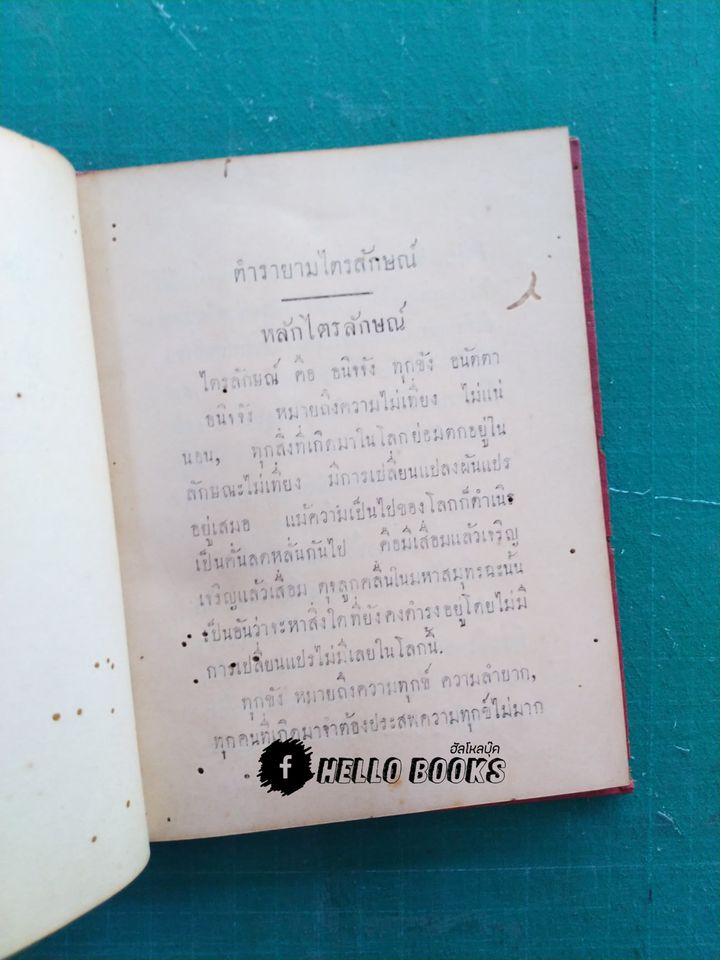 ตำรายามไตรลักษณ์
หลักไตรลักษณ์
ไตรลักษณ์ คือ อนิจจัง ทุกขัง อนัตตา
อนิจจัง หมายถึงความไม่เที่ยง ไม่แน่
นอน, ทุกสิ่งที่เกิดมาในโลกย่อมตกอยู่ใน
ลักษณะไม่เที่ยง มีการเปลี่ยนแปลงผันแปร
อยู่เสมอ แม้ความเป็นไปของโลกก็ดำเนิร
เป็นคั่นลดหลั่นกันไป คือมีเสื่อมแล้วเจริญ
เจริญแล้วเสื่อม ดุจลูกคลื่นในมหาสมุทรฉะนั้น
เป็นอันว่าจะหาสิ่งใดที่ยังคงดำรงอยู่โดยไม่มี
การเปลี่ยนแปรไม่มีเลยในโลกนี้.
ทุกขัง หมายถึงความทุกข์ ความลำยาก,
ทุกคนที่เกิดมาจำต้องประสพความทุกข์ไม่มาก
ฮัลโหลบุ๊ค
f HELLO BOOKS